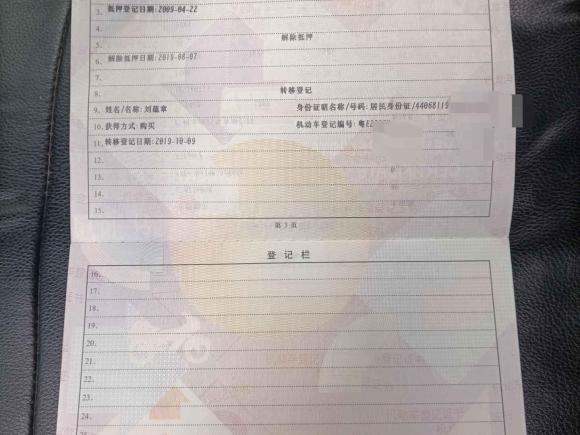 3. 抵押登记日期:2009-04-22
4.
5. 解除抵押
6. 解除抵押日期:2019-08-07
7.
8. 转移登记
9. 姓名/名称:刘蕴章 身份证明名称/号码:居民身份证/44068119
10. 获得方式:购买 机动车登记编号:粤E
11. 转移登记日期:2019-10-09
12.
13.
14.
15.
第 3 页
登 记 栏
16.
17.
18.
19.
20.
21.
22.
23.
24.